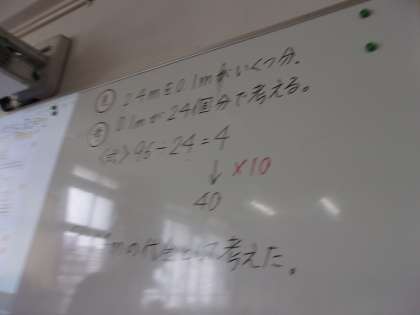 2.4mを0.1mがいくつ分。
0.1mが24個分で考える。
<式>96÷24=4
↓×10
40
mの代金として考えた。